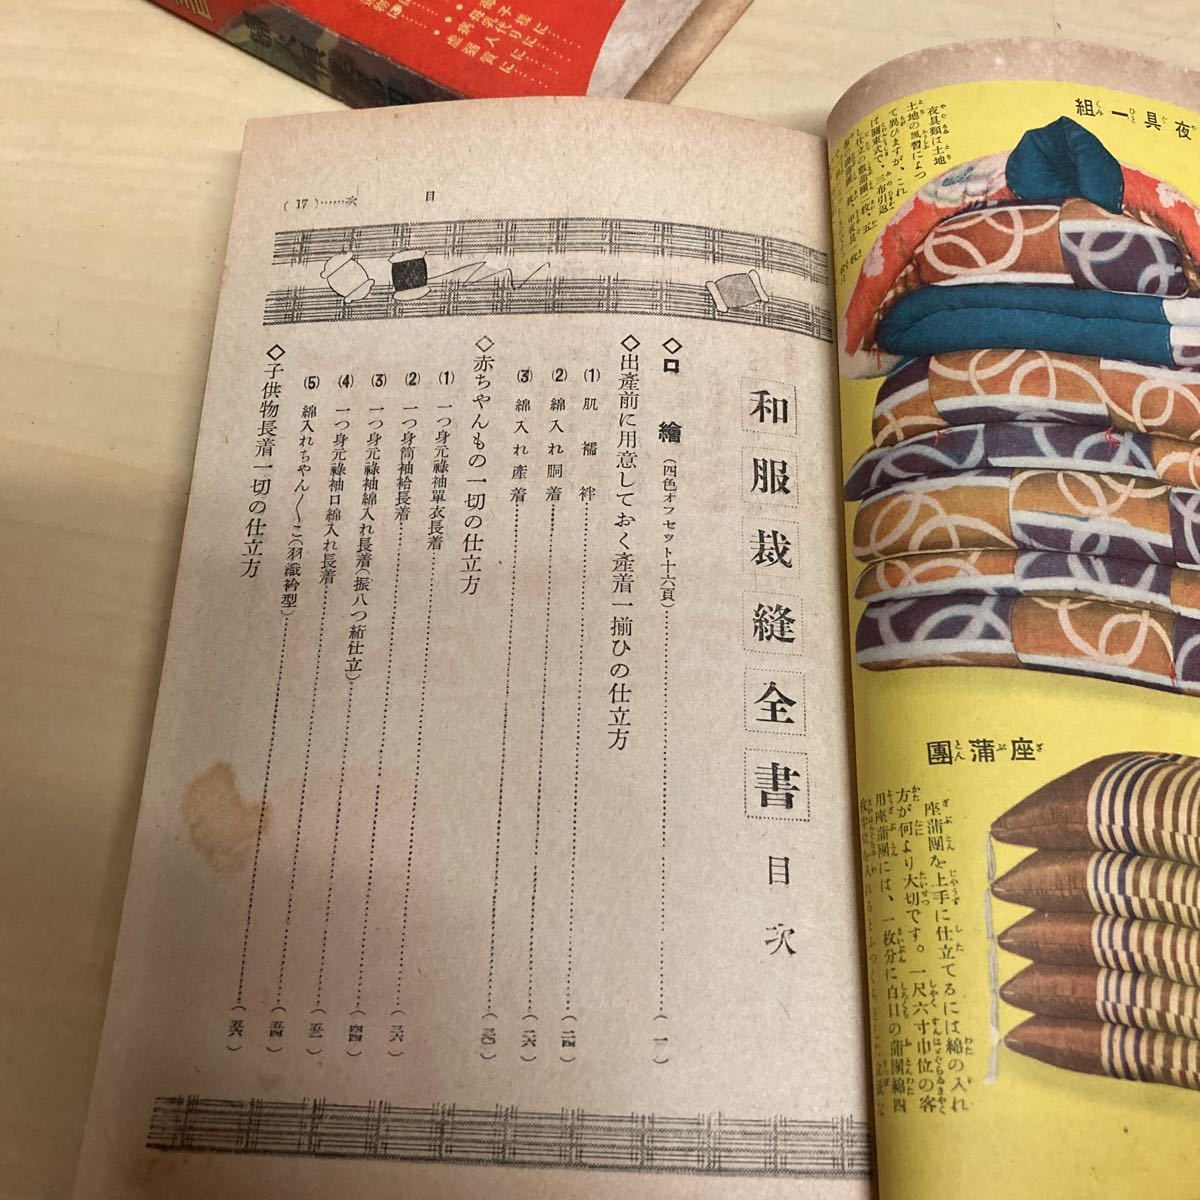 目次……(17)
和服裁縫全書 目次
◇口繪(四色オフセット十六頁)……(一)
◇出產前に用意しておく產着一揃ひの仕立方
(1) 肌襦袢……(二四)
(2) 綿入れ胴着……(二六)
(3) 綿入れ產着……(三〇)
◇赤ちやんもの一切の仕立方
(1) 一つ身元祿袖單衣長着
(2) 一つ身筒袖袷長着
(3) 一つ身元祿袖綿入れ長着(振八つ絎仕立)
(4) 一つ身元祿袖口綿入れ長着
(5) 綿入れちやん〳〵こ(羽織衿型)
◇子供物長着一切の仕立方
夜具一組
夜具類は土地
土地の風習によつ
て異ひますが、これ
は關東式で、三布引返
座蒲團
座蒲團を上手に仕立てるには綿の入れ
方が何より大切です。一尺六寸巾位の客
用座蒲團には、一枚分に白目の蒲團綿四